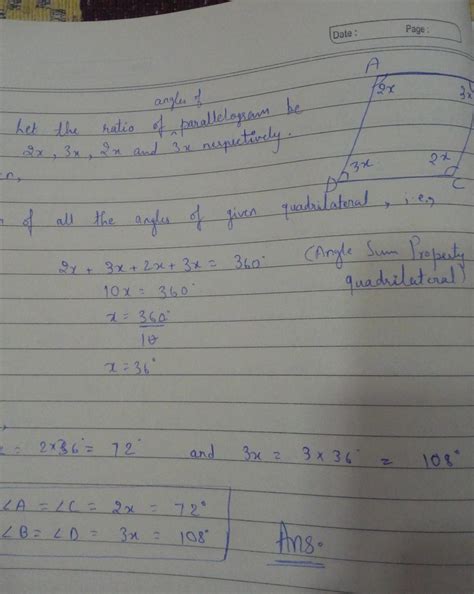 Date :
Page :
A
2x
3x
angles of
Let the ratio of parallelogram be
2x, 3x, 2x and 3x respectively.
D
3x
2x
C
of all the angles of given quadrilateral, i.e,
2x + 3x + 2x + 3x = 360°
(Angle Sum Property
10x = 360°
quadrilateral)
x = 360°
10
x = 36°
= 2x36° = 72° and 3x = 3 x 36° = 108°
∠A = ∠C = 2x = 72°
∠B = ∠D = 3x = 108°
Ans.